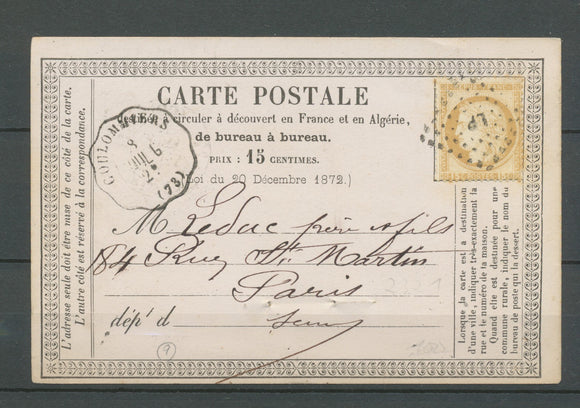 CARTE POSTALE
à circuler à découvert en France et en Algérie,
de bureau à bureau.
PRIX : 15 CENTIMES.
(Loi du 20 Décembre 1872.)
COULOMMIERS
8
JUIL
(73)
LP
M. Leduc père & fils
184 Rue St. Martin
Paris
dép.t d Seine
L'adresse seule doit être mise de ce côté de la carte.
L'autre côté est réservé à la correspondance.
Lorsque la carte est à destination
d'une ville, indiquer très-exactement la
rue et le numéro de la maison.
Quand elle est destinée pour une
commune rurale, indiquer le nom du
bureau de poste qui la dessert.